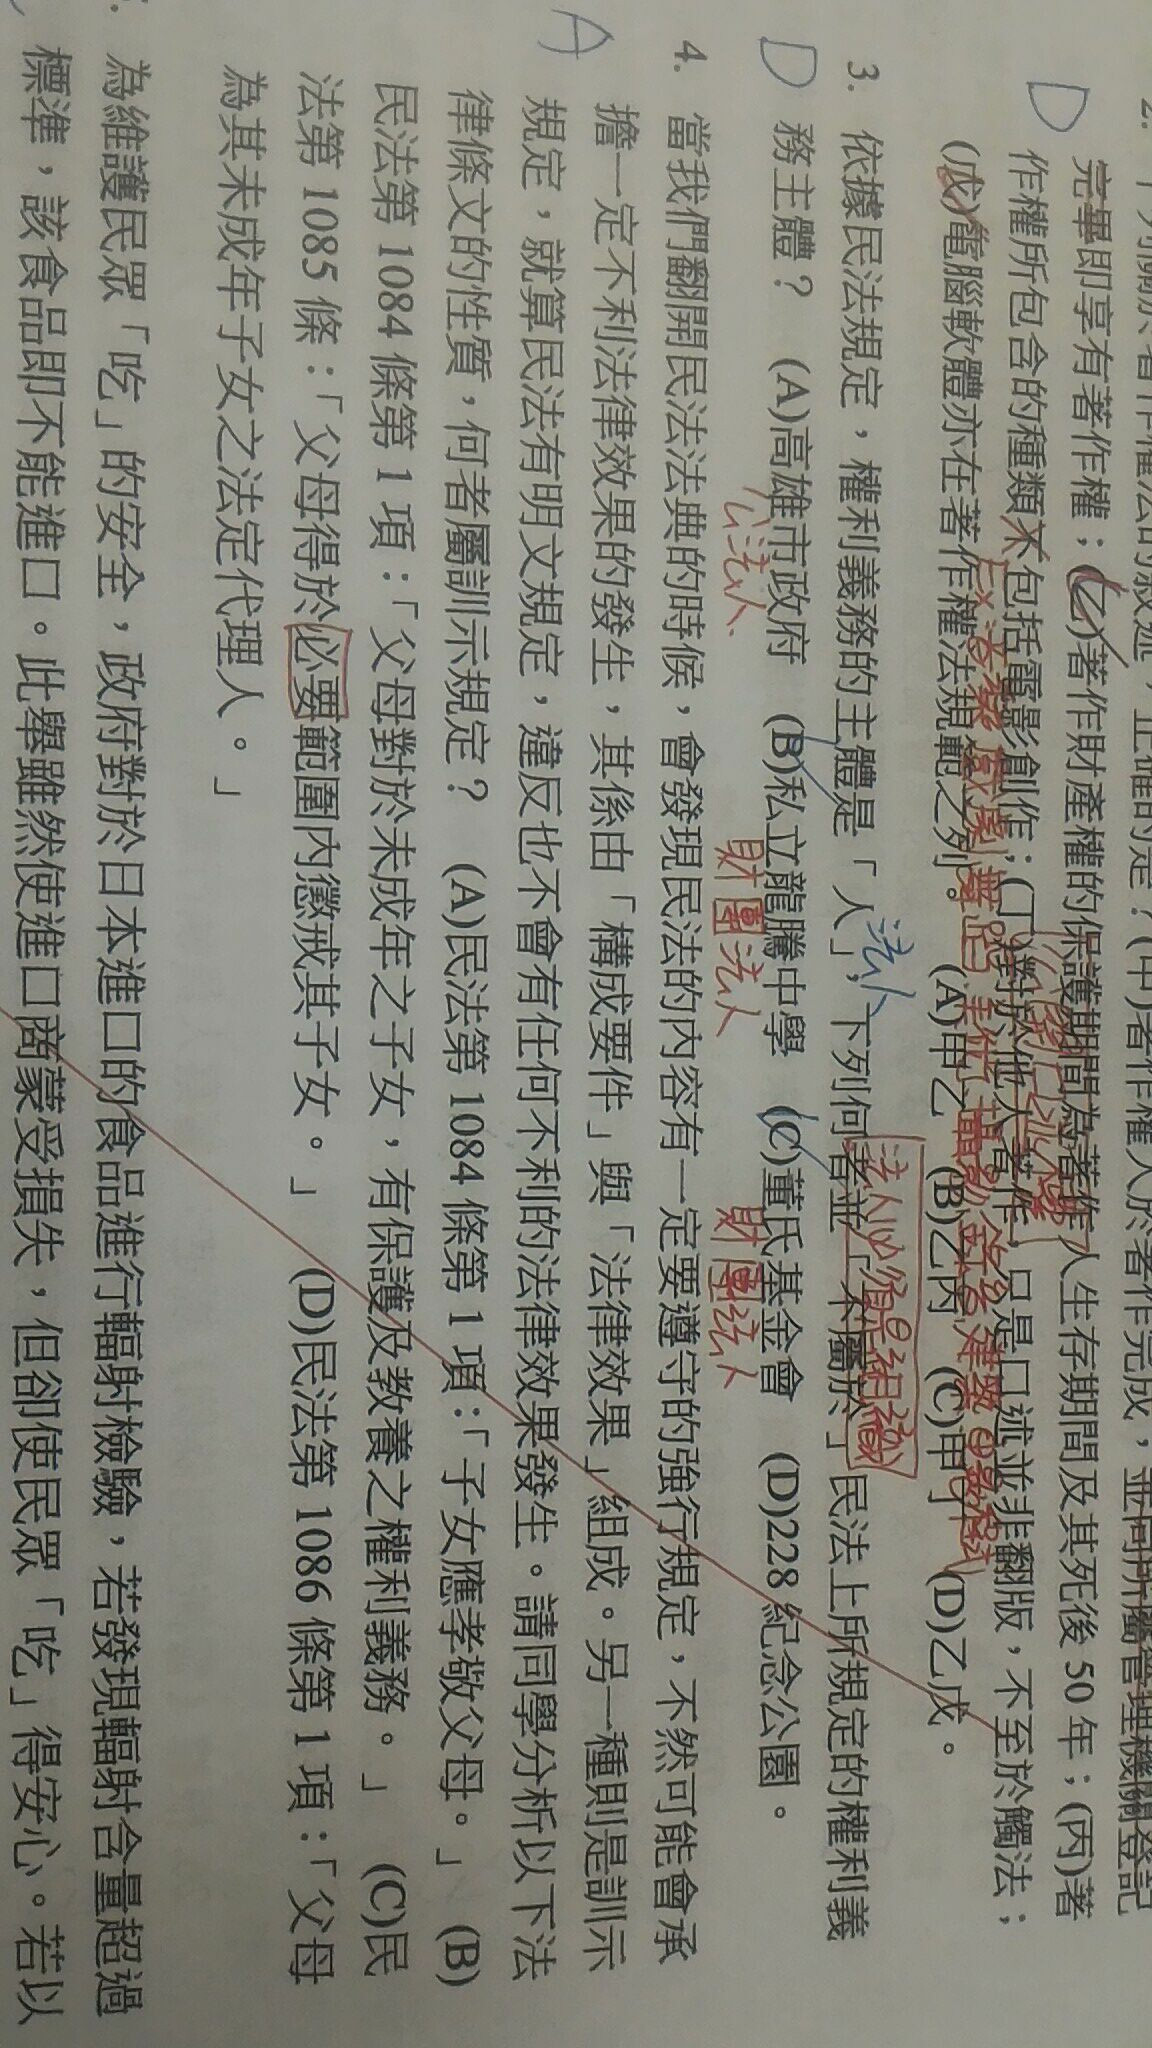 2. 下列關於著作權法的敘述，正確的是？(甲)著作權人於著作完成，並向所屬管理機關登記
D 完畢即享有著作權；(乙)著作財產權的保護期間為著作人生存期間及其死後 50 年；(丙)著
作權所包含的種類不包括電影創作；(丁)對於他人著作，只是口述並非翻版，不至於觸法；
(戊)電腦軟體亦在著作權法規範之列。 (A)甲乙 (B)乙丙 (C)甲丁 (D)乙戊。
法人
法人必須是組織
3. 依據民法規定，權利義務的主體是「人」，下列何者並「不屬於」民法上所規定的權利義
D 務主體？ (A)高雄市政府 (B)私立龍騰中學 (C)董氏基金會 (D)228 紀念公園。
公法人 財團法人 財團法人
4. 當我們翻開民法法典的時候，會發現民法的內容有一定要遵守的強行規定，不然可能會承
A 擔一定不利法律效果的發生，其係由「構成要件」與「法律效果」組成。另一種則是訓示
規定，就算民法有明文規定，違反也不會有任何不利的法律效果發生。請同學分析以下法
律條文的性質，何者屬訓示規定？ (A)民法第 1084 條第 1 項：「子女應孝敬父母。」 (B)
民法第 1084 條第 1 項：「父母對於未成年之子女，有保護及教養之權利義務。」 (C)民
法第 1085 條：「父母得於必要範圍內懲戒其子女。」 (D)民法第 1086 條第 1 項：「父母
為其未成年子女之法定代理人。」
為維護民眾「吃」的安全，政府對於日本進口的食品進行輻射檢驗，若發現輻射含量超過
標準，該食品即不能進口。此舉雖然使進口商蒙受損失，但卻使民眾「吃」得安心。若以